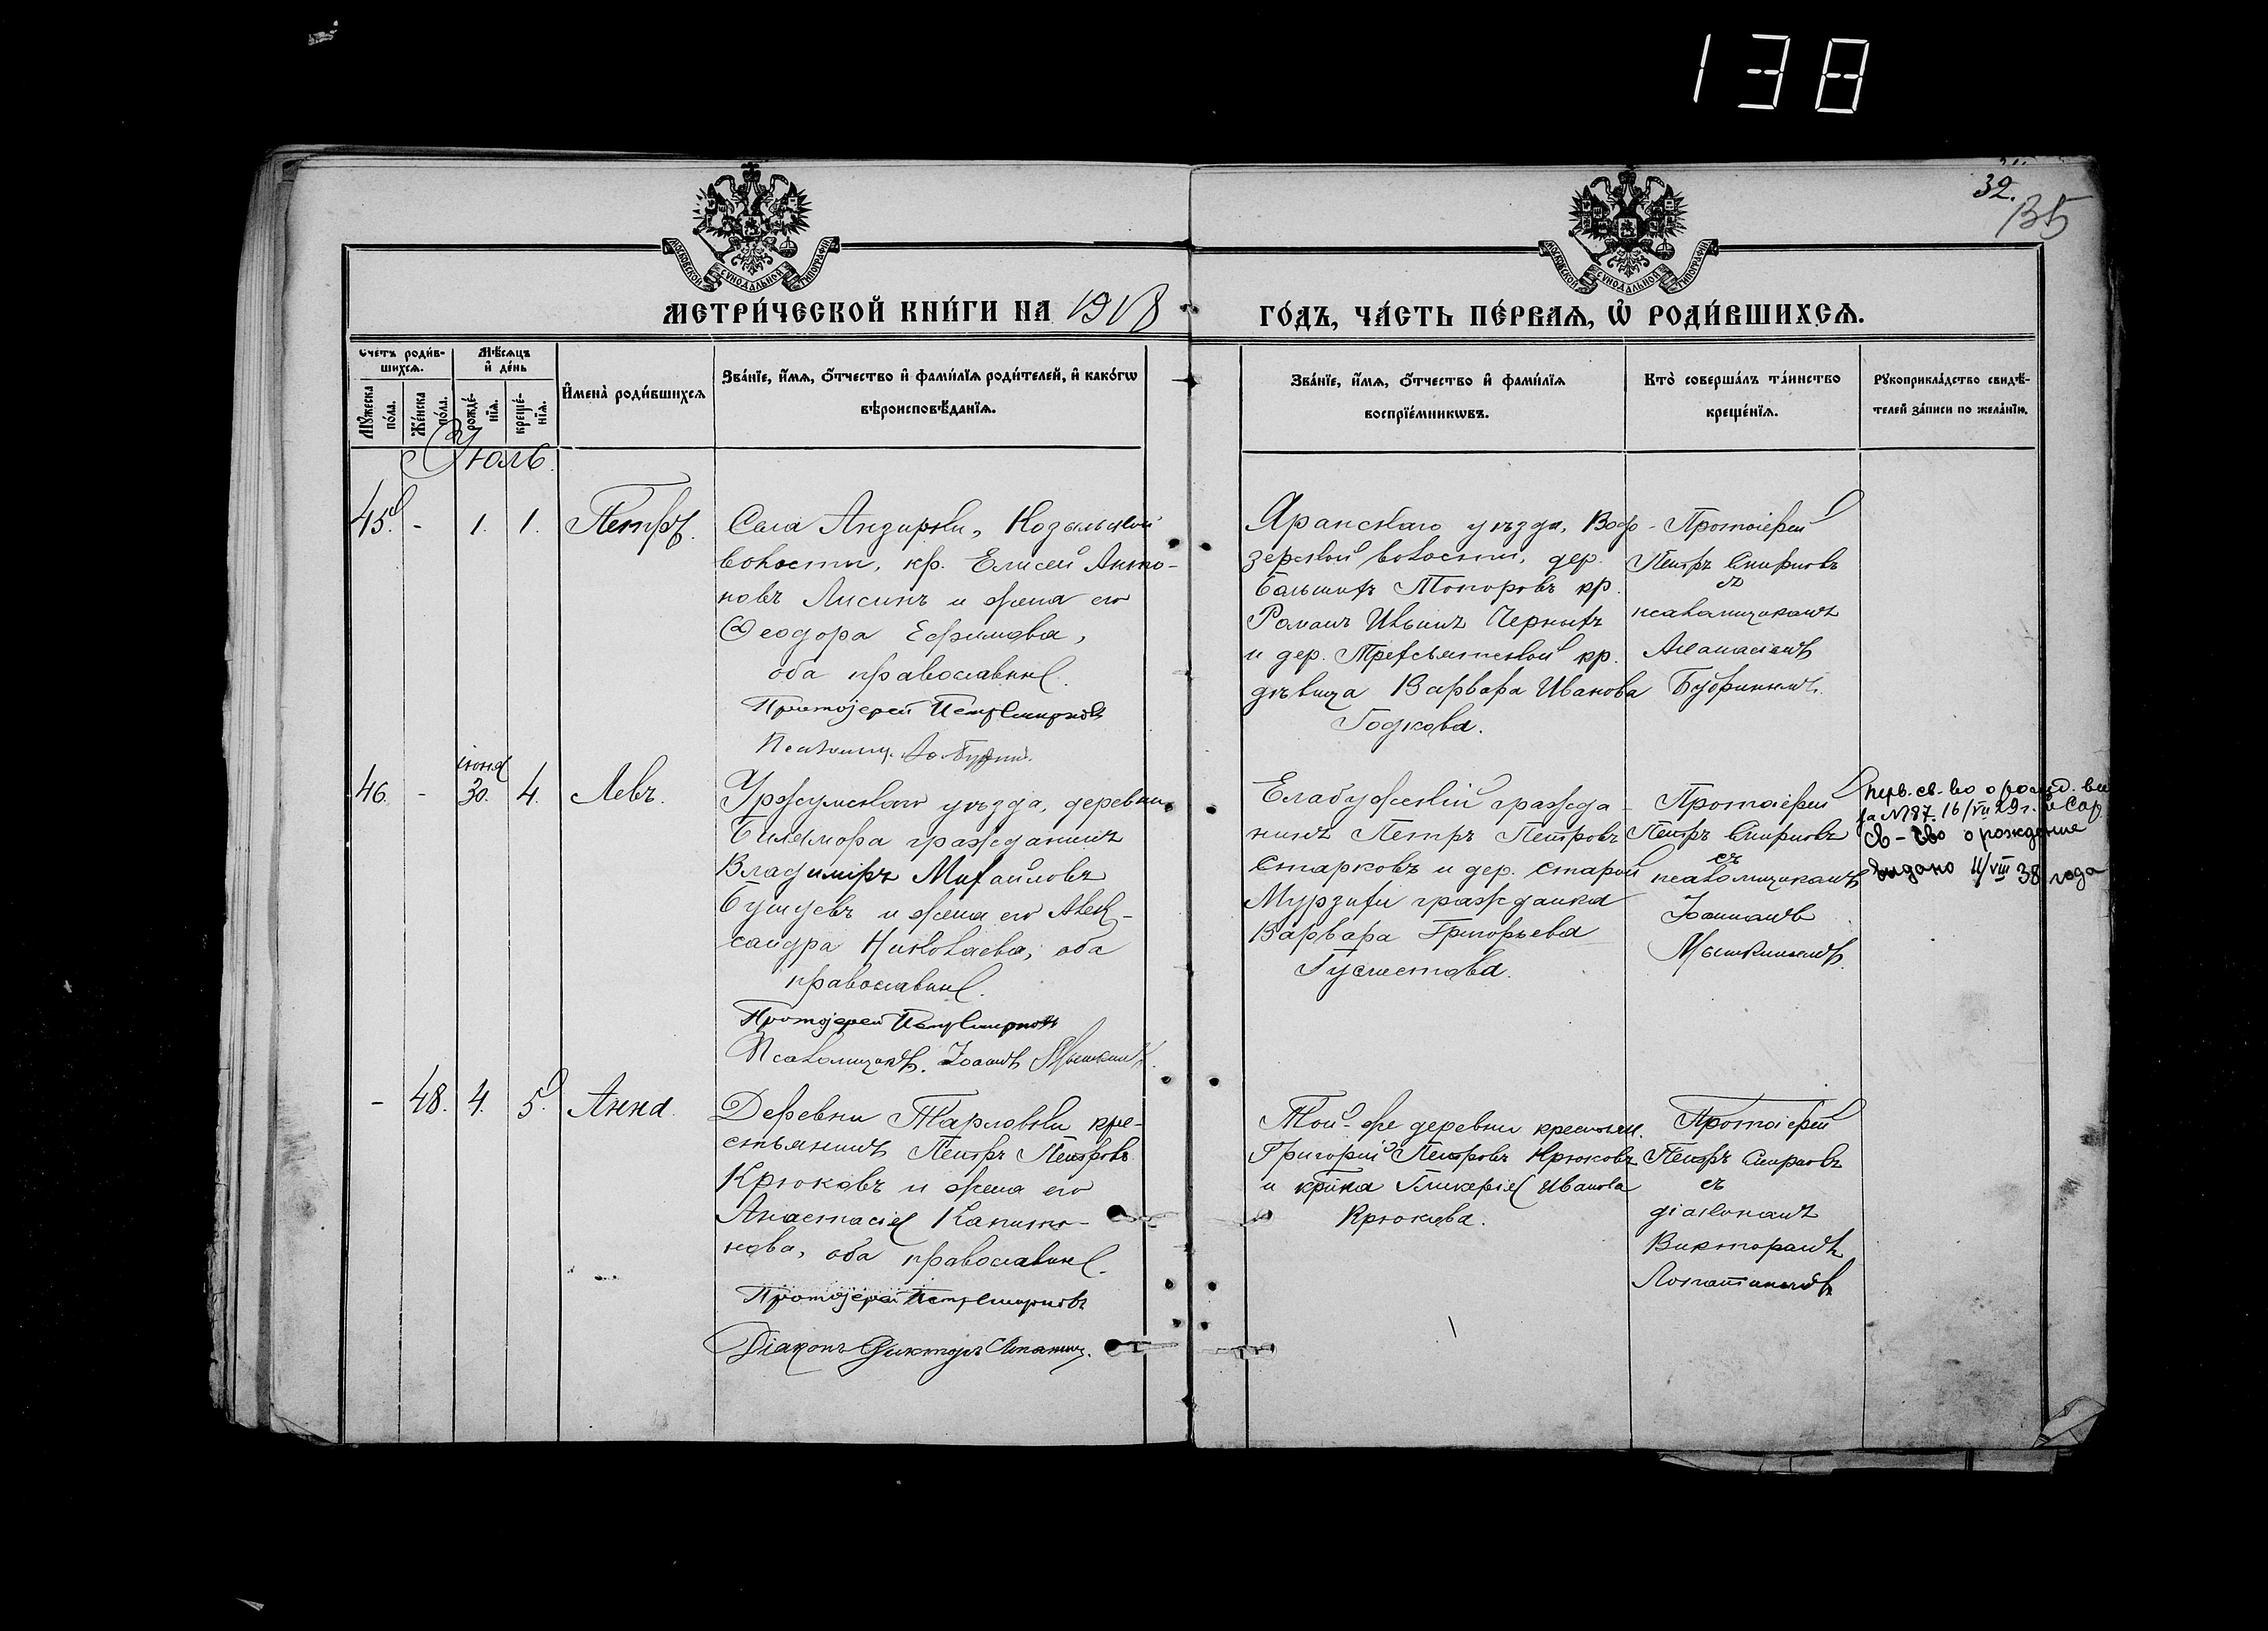 138
32.
135
МОСКОВСКОЙ СѴНОДАЛЬНОЙ ТИПОГРАФІИ
МОСКОВСКОЙ СѴНОДАЛЬНОЙ ТИПОГРАФІИ
МЕТРИ́ЧЕСКОЙ КНИ́ГИ НА 1918 ГО́ДЪ, ЧА́СТЬ ПЕ́РВАѦ, Ѽ РОДИ́ВШИХСѦ.
Счетъ роди́в-
шихсѧ.
Мꙋжеска по́ла.
Же́нска по́ла.
Мѣ́сѧцъ
и҆ де́нь
рожде́-
нїѧ.
креще́-
нїѧ.
И҆мена̀ роди́вшихсѧ
Зва́нїе, и҆́мѧ, ѻ҆́тчество и҆ фами́лїѧ роди́телей, и҆ како́гѡ
вѣроисповѣ́данїѧ.
Зва́нїе, и҆́мѧ, ѻ҆́тчество и҆ фами́лїѧ
воспрїе́мникѡвъ.
Кто̀ соверша́лъ та́инство
креще́нїѧ.
Рꙋкоприкла́дство свидѣ́-
телей за́писи по жела́нїю.
Іюль
45. - 1. 1. Петръ.
Села Анзирки, Козыльской
волости, кр. Елисей Анто-
новъ Лисинъ и жена его
Ѳеодора Ефимова,
оба православные.
Протоіерей Петръ Смирновъ
Яранскаго уѣзда, Водо-
зерской волости, дер.
Большихъ Топоровъ кр.
Романъ Ильинъ Черныхъ
и дер. Трехсвятской кр.
дѣвица Варвара Иванова
Годкова.
Протоіерей
Петръ Смирновъ
съ
псаломщикомъ
Аѳанасіемъ
46. - іюня 30. 4. Левъ.
Уржумскаго уѣзда, деревни
Билямора гражданинъ
Владиміръ Михайловъ
Бушуевъ и жена его Алек-
сандра Николаева, оба
православные.
Протоіерей Петръ Смирновъ
Псаломщикъ. Іоаннъ Мышкинъ.
Елабужскій гражда-
нинъ Петръ Петровъ
Старковъ и дер. Старой
Мурзихи гражданка
Варвара Григорьева
Протоіерей
Петръ Смирновъ
съ
псаломщикомъ
Іоанномъ
Мышкинымъ.
св-тво о рождение
видано 11/VIII 38 года
- 48. 4. 5. Анна.
Деревни Тарловки кре-
стьянинъ Петръ Петровъ
Крюковъ и жена его
Анастасія Капито-
нова, оба православные.
Протоіерей Петръ Смирновъ
Діаконъ Викторъ Лопатин.
Той-же деревни крестьян.
Григорій Петровъ Крюковъ
и кр-нка Гликерія Иванова
Крюкова.
Протоіерей
Петръ Смирновъ
съ
діакономъ
Викторомъ
Лопатинымъ